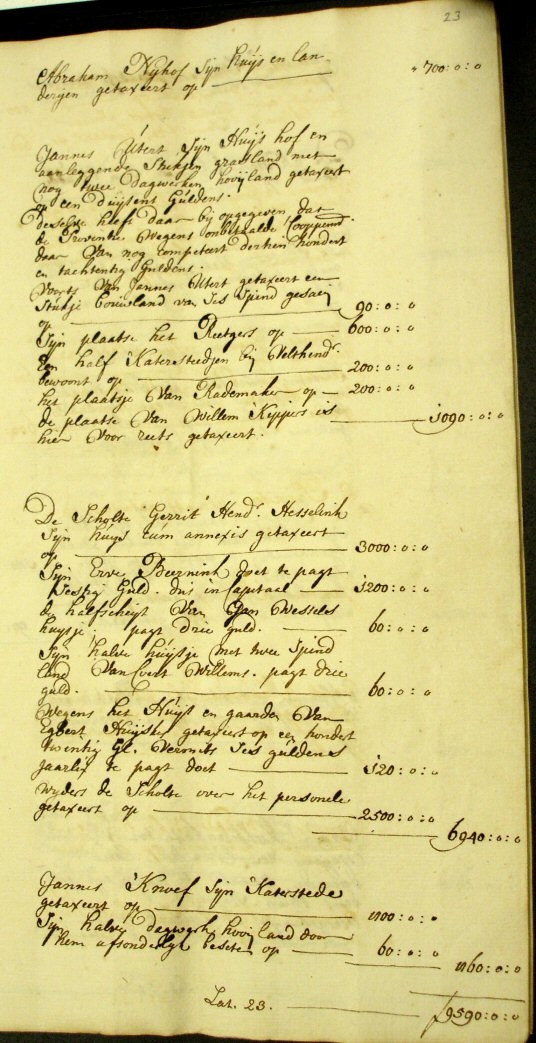 23
Abraham Nijhof Sijn huijs en lan-
derijen getaxeert op — 700:0:0
Jannes Utert Sijn Huijs hof en
aanleggende Stukjen grasland met
nog twee dagwerken hooijland getaxeert
op een duijsent Guldens.
Deselve heeft daar bij opgegeven, dat
de Proventie Wegens onbetaalde
daar Van nog competeert dertien hondert
en tachtentig Guldens.
Voorts Van Jannes Utert getaxeert een
Stukje bouwland van Ses Spind gesaeij
op — 90:0:0
Sijn plaatse het Rutgers op — 600:0:0
Een half Katersteedjen bij Velthend.
bewoont op — 200:0:0
het plaatsje Van Rademaker op — 200:0:0
de plaatse Van Willem Kippers is — 1090:0:0
hier Voor reets getaxeert.
De Scholte Gerrit Hend. Hesselink
Sijn huijs cum annexis getaxeert
op — 3000:0:0
Sijn Erve Beernink doet te pagt
Sestig Guld. dus in Capitaal — 1200:0:0
de halfscheijt Van Jan Wessels
huijsje, pagt drie guld. — 60:0:0
Sijn halve huijsje met twee Spind
land Van Evert Willems. pagt drie
guld. — 60:0:0
Wegens het Huijs en gaarden Van
Egbert Huijsken getaxeert op een hondert
twintig Gl. Vermits Ses guldens
jaarlix te pagt doet — 120:0:0
Wijders de Scholte over het personele
getaxeert op — 2500:0:0
6940:0:0
Jannes Knoef Sijn Katerstede
getaxeert op — 1100:0:0
Sijn halve dagwerk hooijland door
hem afsonderlijk beseten op — 60:0:0
1160:0:0
Lat. 23. — f9590:0:0